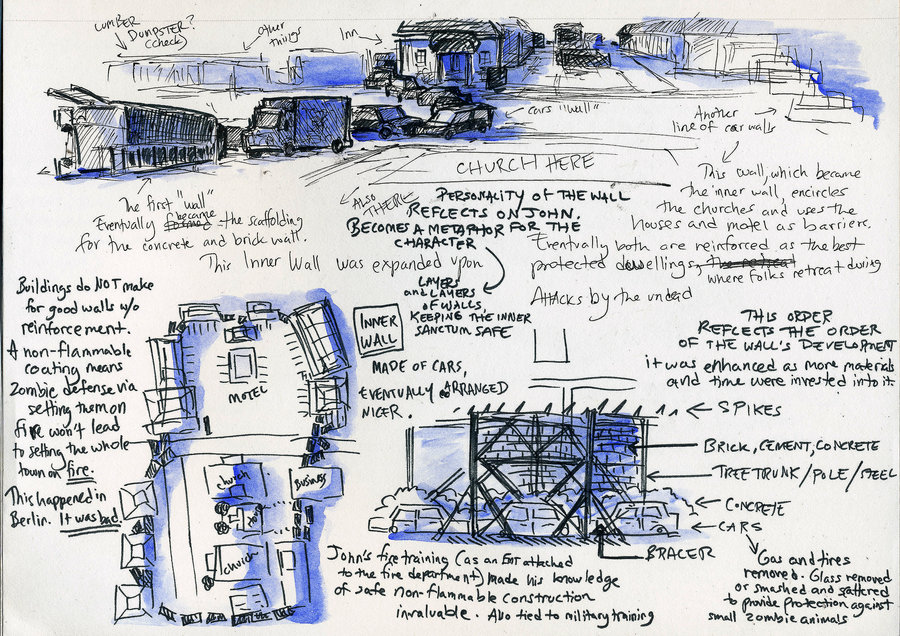 LUMBER
DUMPSTER?
(check)
other
things
Inn
cars "wall"
Another
line of car walls
CHURCH HERE
ALSO
THERE
The first "wall"
Eventually became the scaffolding
for the concrete and brick wall.
This Inner Wall was expanded upon
PERSONALITY OF THE WALL
REFLECTS ON JOHN.
BECOMES A METAPHOR FOR THE
CHARACTER
LAYERS
and LAYERS
OF WALLS,
KEEPING THE INNER
SANCTUM SAFE
This wall, which became
the inner wall, encircles
the churches and uses the
houses and motel as barriers.
Eventually both are reinforced as the best
protected dwellings,
where folks retreat during
Attacks by the undead
Buildings do NOT make
for good walls w/o
reinforcement.
A non-flammable
coating means
Zombie defense via
setting them on
fire won't lead
to setting the whole
town on fire.
This happened in
Berlin. It was bad.
MOTEL
church
BUSINESS
church
INNER
WALL
MADE OF CARS,
EVENTUALLY ARRANGED
NICER.
THIS ORDER
REFLECTS THE ORDER
OF THE WALL'S DEVELOPMENT
it was enhanced as more materials
and time were invested into it
SPIKES
BRICK, CEMENT, CONCRETE
TREE TRUNK/POLE/STEEL
CONCRETE
CARS
BRACER
Gas and tires
removed. Glass removed
or smashed and scattered
to provide protection against
small zombie animals
John's fire training (as an EMT attached
to the fire department) made his knowledge
of safe non-flammable construction
invaluable. Also tied to military training